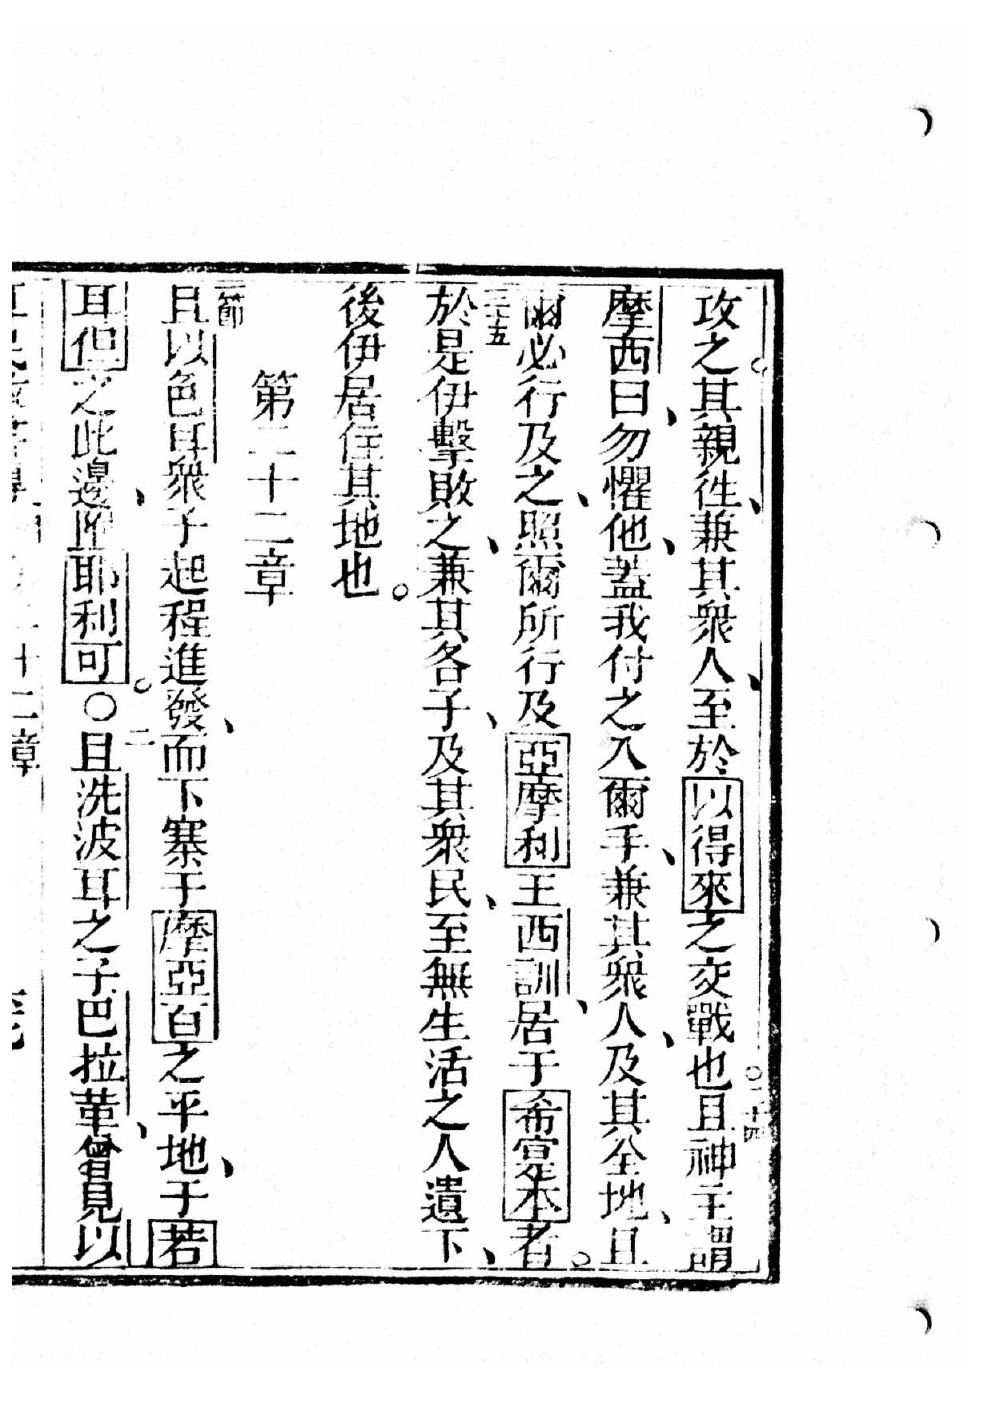 攻之。其親徃、兼其衆人、至於以得來之交戰也。二十四且神主謂
摩西曰、勿懼他、蓋我付之入爾手、兼其衆人、及其全地、且
爾必行及之、照爾所行及亞摩利王西訓、居于希寔本者。
三十五於是伊擊敗之、兼其各子、及其衆民、至無生活之人遺下、
後伊居住其地也。
第二十二章
一節且以色耳衆子起程進發、而下寨于摩亞百之平地、于若
耳但之此邊、陞耶利可。〇二且洗波耳之子巴拉革、曾見以